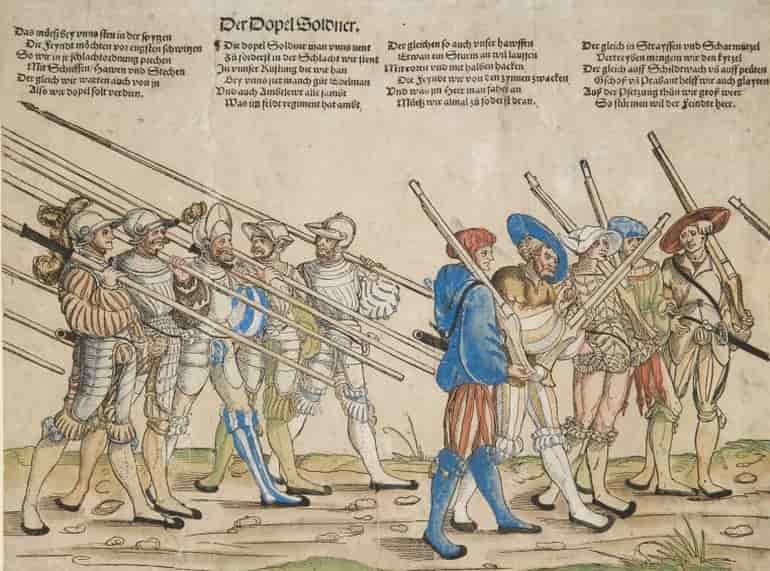 Der Dopel Soldner.
Das müeß bey unns sten in der spytzen
Die Feyndt möchten vor engsten schwitzen
So wir in je schlachtordnung prechen
Mit Schiessen Hawen und Stechen
Der gleich wir warten auch von in
Also wir dopel solt verdien.
¶ Die dopel Soldner man unns nent
Zu forderst in der Schlacht wir sient
In unser Rüstung die wir han
Bey unns ist manch gut Edelman
Und auch Ambtslewt alle sambt
Was im feldt regiment hat ambt,
Der gleichen so auch unser hawffen
Etwan ein Sturm an wil lauffen
Mit roren und mit halben hacken
Die Feyndt wir von den zynnen zwacken
Und was im Heer man fahet an
Müeß wir almal zu foderst dran.
Der gleich in Strayffen und Scharmützel
Vertreyben mengem wir den kytzel
Der gleich auff Schildtwach uñ auff peütten
Gschoß uñ Prafiant helff wir auch glaytten
Auß der Bsetzung thün wir groß weer
So stürmen wil der Feindte heer.